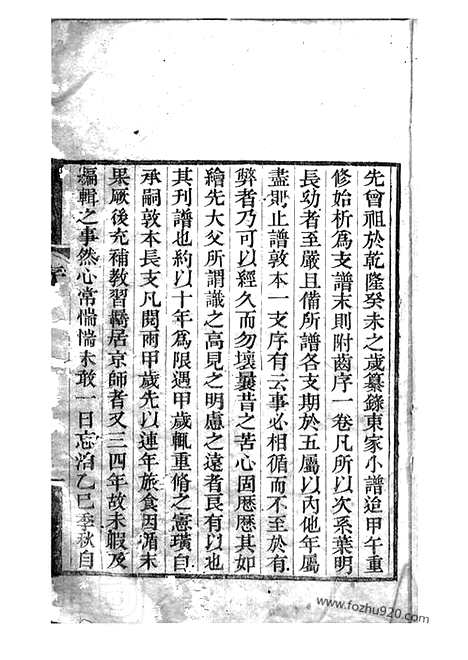 先曾祖於乾隆癸未之歲纂錄東家小譜迨甲午重
修始析爲支譜末則附齒序一卷凡所以次系葉明
長幼者至嚴且備所譜各支期於五屬以內他年屬
盡則止譜敦本一支序有云事必相循而不至於有
弊者乃可以經久而勿壞曩昔之苦心固歷歷其如
繪先大父所謂識之高見之明慮之遠者良有以也
其刊譜也約以十年爲限遇甲歲輒重脩之憲璜自
承嗣敦本長支凡閱兩甲歲先以連年旅食因循未
果厥後充補教習僑居京師者又三四年故未暇及
編輯之事然心常惴惴未敢一日忘洎乙巳季秋自
序
www.fozhu920.com